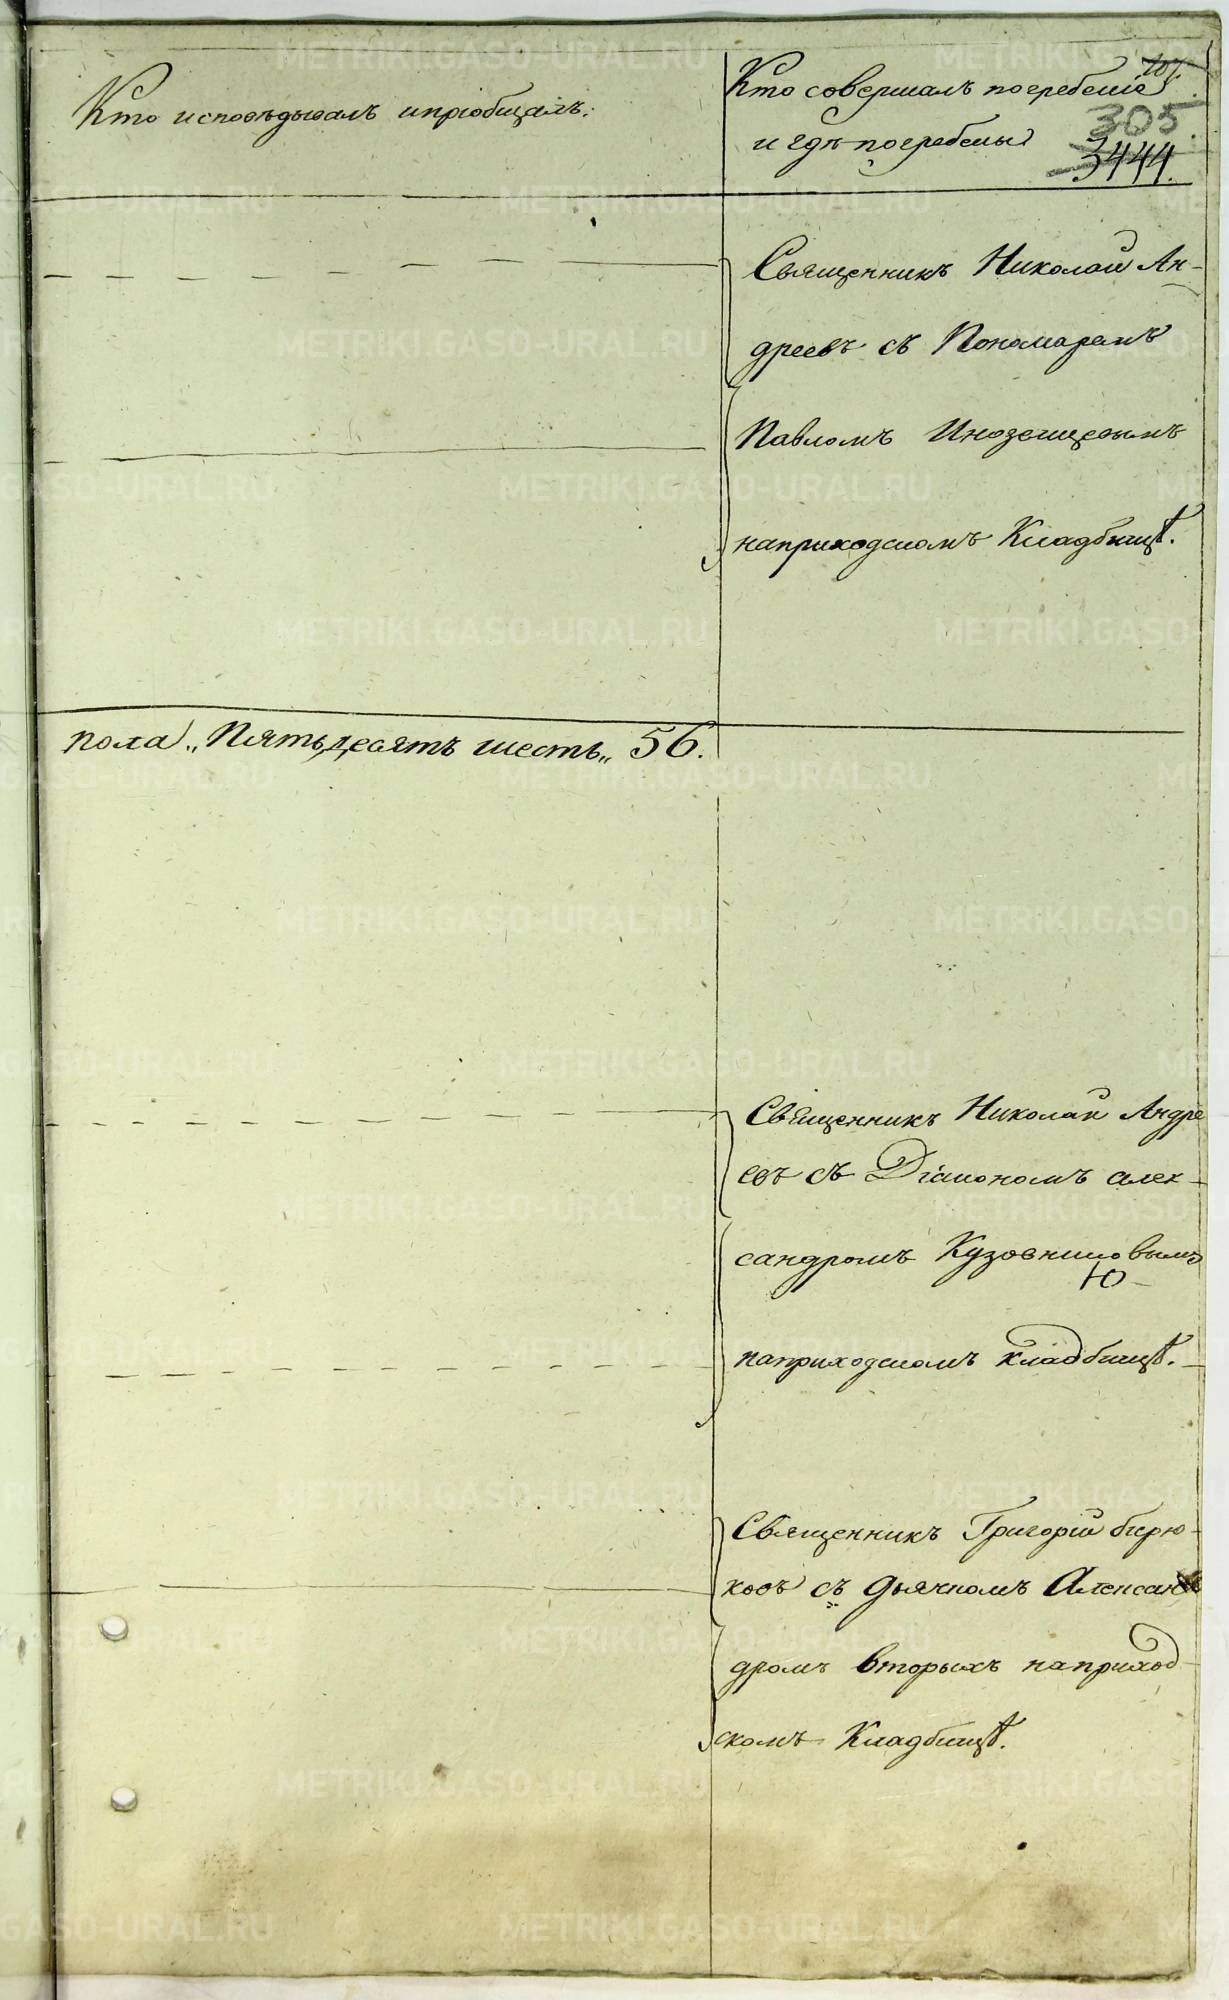 Кто исповѣдывалъ и пріобщалъ:
Кто совершалъ погребеніе
и гдѣ погребены
305
3444.
Священникъ Николай Ан-
дреевъ съ Пономаремъ
Павломъ Иноземцевымъ
наприходскомъ Кладбищѣ.
пола „Пятьдесятъ шесть„ 56.
Священникъ Николай Андре
евъ съ Діакономъ алек-
сандромъ Кузовниковымъ
Ю-
наприходскомъ кладбищѣ.
Священникъ Григорій бирю-
ковъ съ дьячкомъ Алексан
дромъ вторыхъ наприход-
скомъ Кладбищѣ.
METRIKI.GASO-URAL.RU